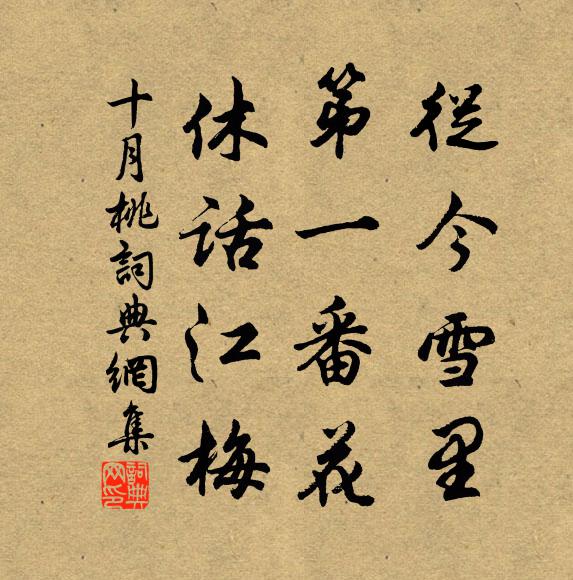 從今雪里
第一番花
休話江梅
十月桃詞典網集
詞典网印